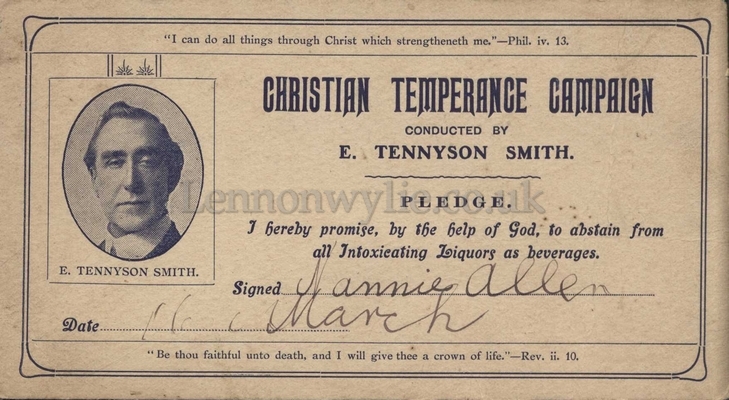 "I can do all things through Christ which strengtheneth me."—Phil. iv. 13.
CHRISTIAN TEMPERANCE CAMPAIGN
CONDUCTED BY
E. TENNYSON SMITH.
Lennonwylie.co.uk
PLEDGE.
I hereby promise, by the help of God, to abstain from
all Intoxicating Liquors as beverages.
E. TENNYSON SMITH.
Signed Nannie Allen
Date 16 March
"Be thou faithful unto death, and I will give thee a crown of life."—Rev. ii. 10.